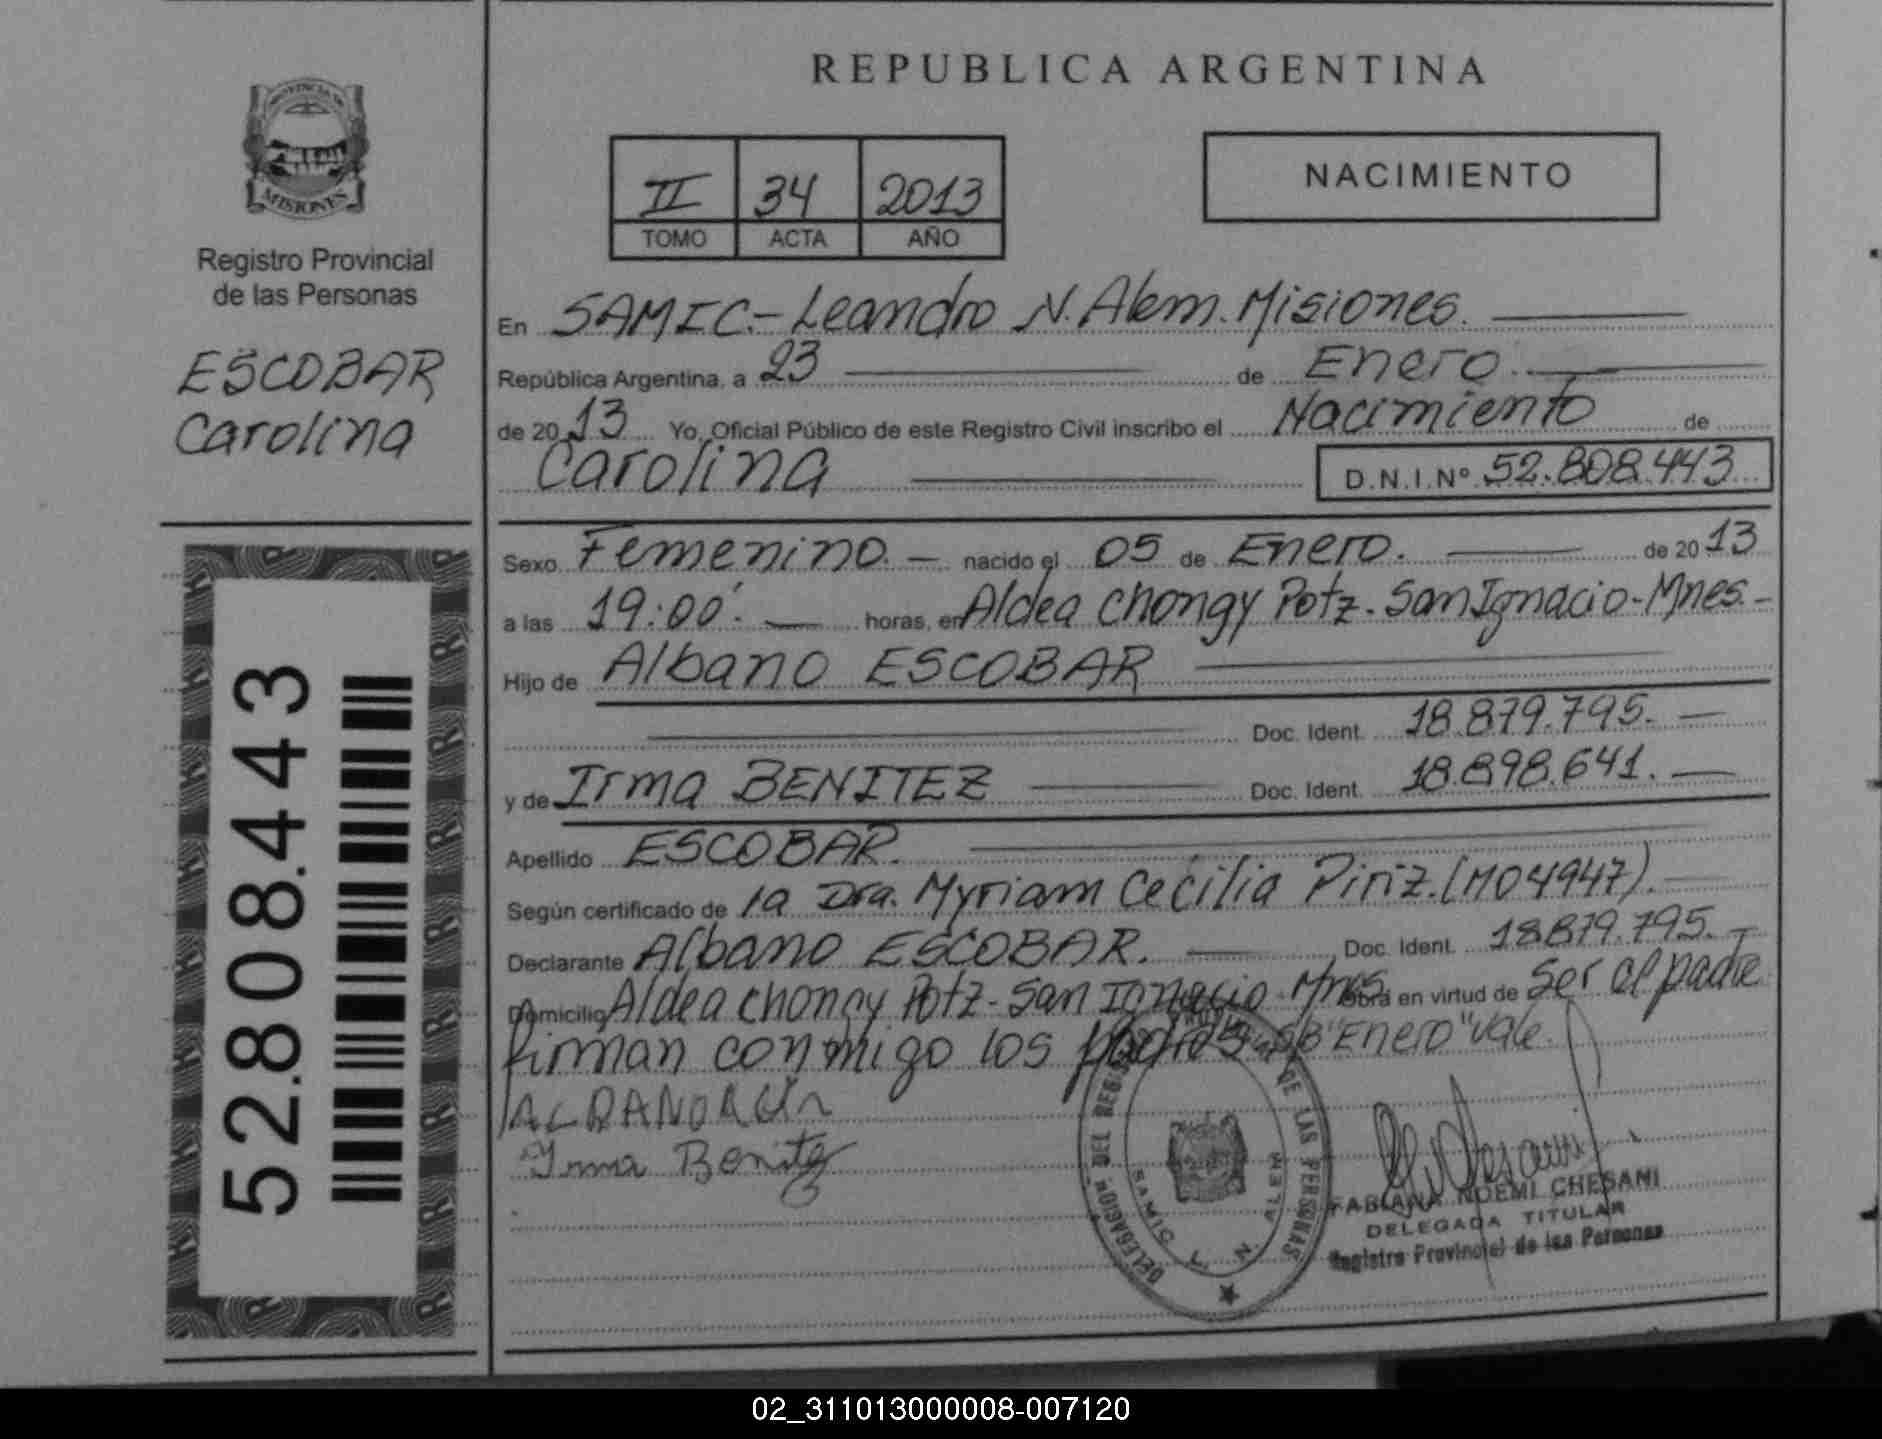 REPUBLICA ARGENTINA
PROVINCIA DE
MISIONES
Registro Provincial
de las Personas
ESCOBAR
Carolina
52.808.443
II 34 2013
TOMO ACTA AÑO
NACIMIENTO
En SAMIC.- Leandro N. Alem. Misiones.
República Argentina, a 23 de Enero.
de 2013 Yo, Oficial Público de este Registro Civil inscribo el Nacimiento de
Carolina D.N.I.Nº 52.808.443
Sexo Femenino.- nacido el 05 de Enero. de 2013
a las 19:00'. horas, en Aldea Chongy Potz. San Ignacio-Mnes.-
Hijo de Albano ESCOBAR
Doc. Ident. 18.879.795.
y de Irma BENITEZ Doc. Ident. 18.898.641.
Apellido ESCOBAR.
Según certificado de la Dra. Myriam Cecilia Piriz. (M04947).
Declarante Albano ESCOBAR. Doc. Ident. 18.879.795.-
Domicilio Aldea Chongy Potz- San Ignacio- Mnes Obra en virtud de Ser el padre
firman conmigo los padres "Enero" Vale.
Irma Benitez
DELEGACION DEL REGISTRO DE LAS PERSONAS
SAMIC L. N. ALEM
FABIANA NOEMI CHESANI
DELEGADA TITULAR
Registro Provincial de las Personas
02_311013000008-007120